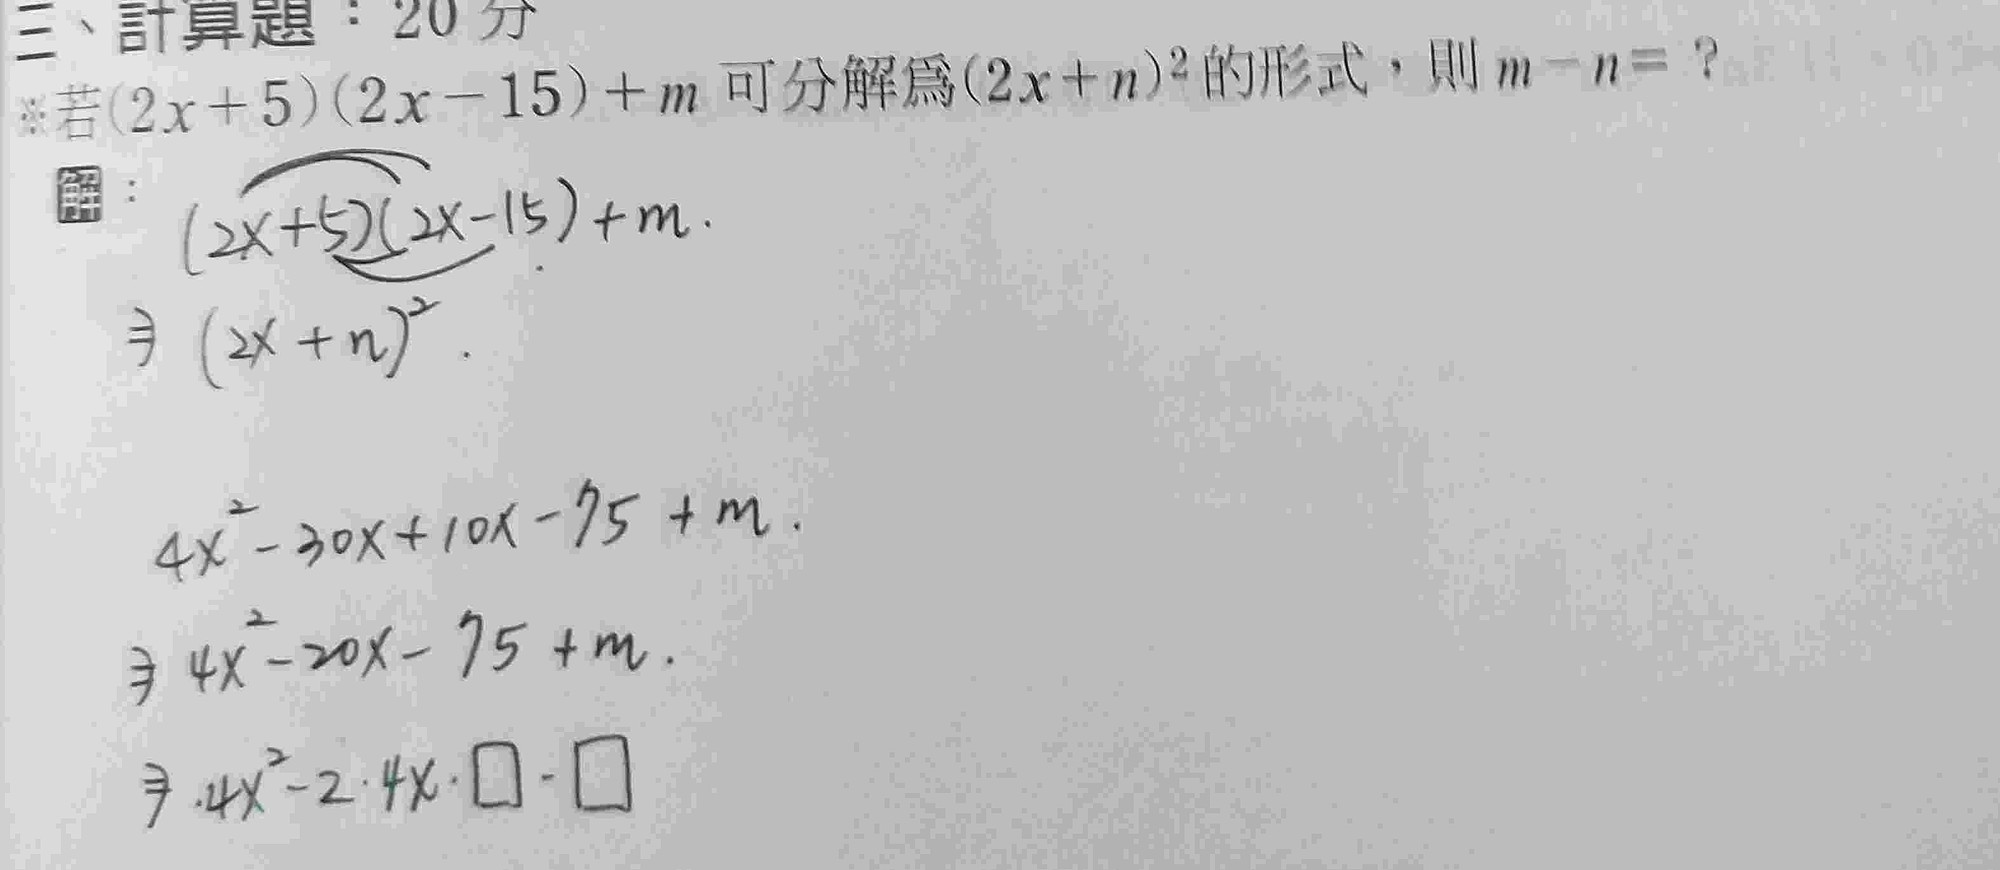 三、計算題：20 分
※若(2x+5)(2x-15)+m 可分解為(2x+n)²的形式，則 m-n=？
解：
(2x+5)(2x-15)+m.
⇒ (2x+n)².
4x²-30x+10x-75+m.
⇒ 4x²-20x-75+m.
⇒ .4x²-2·4x·□-□